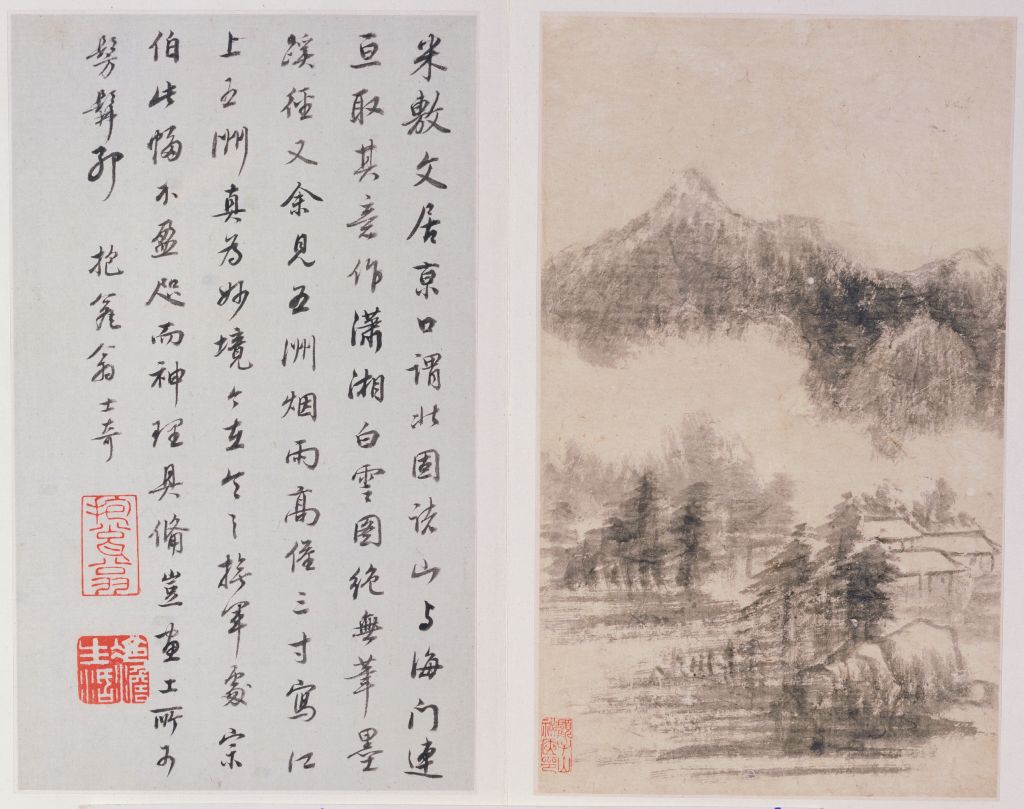 米敷文居京口謂北固諸山与海门連
亘取其意作瀟湘白雲圖絶無筆墨
蹊徑又余見五洲烟雨髙僅三寸寫江
上五洲真为妙境今在今之揔军處宗
伯此幅不盈咫而神理具備豈画工所可
髣髴耶 抱翁士奇